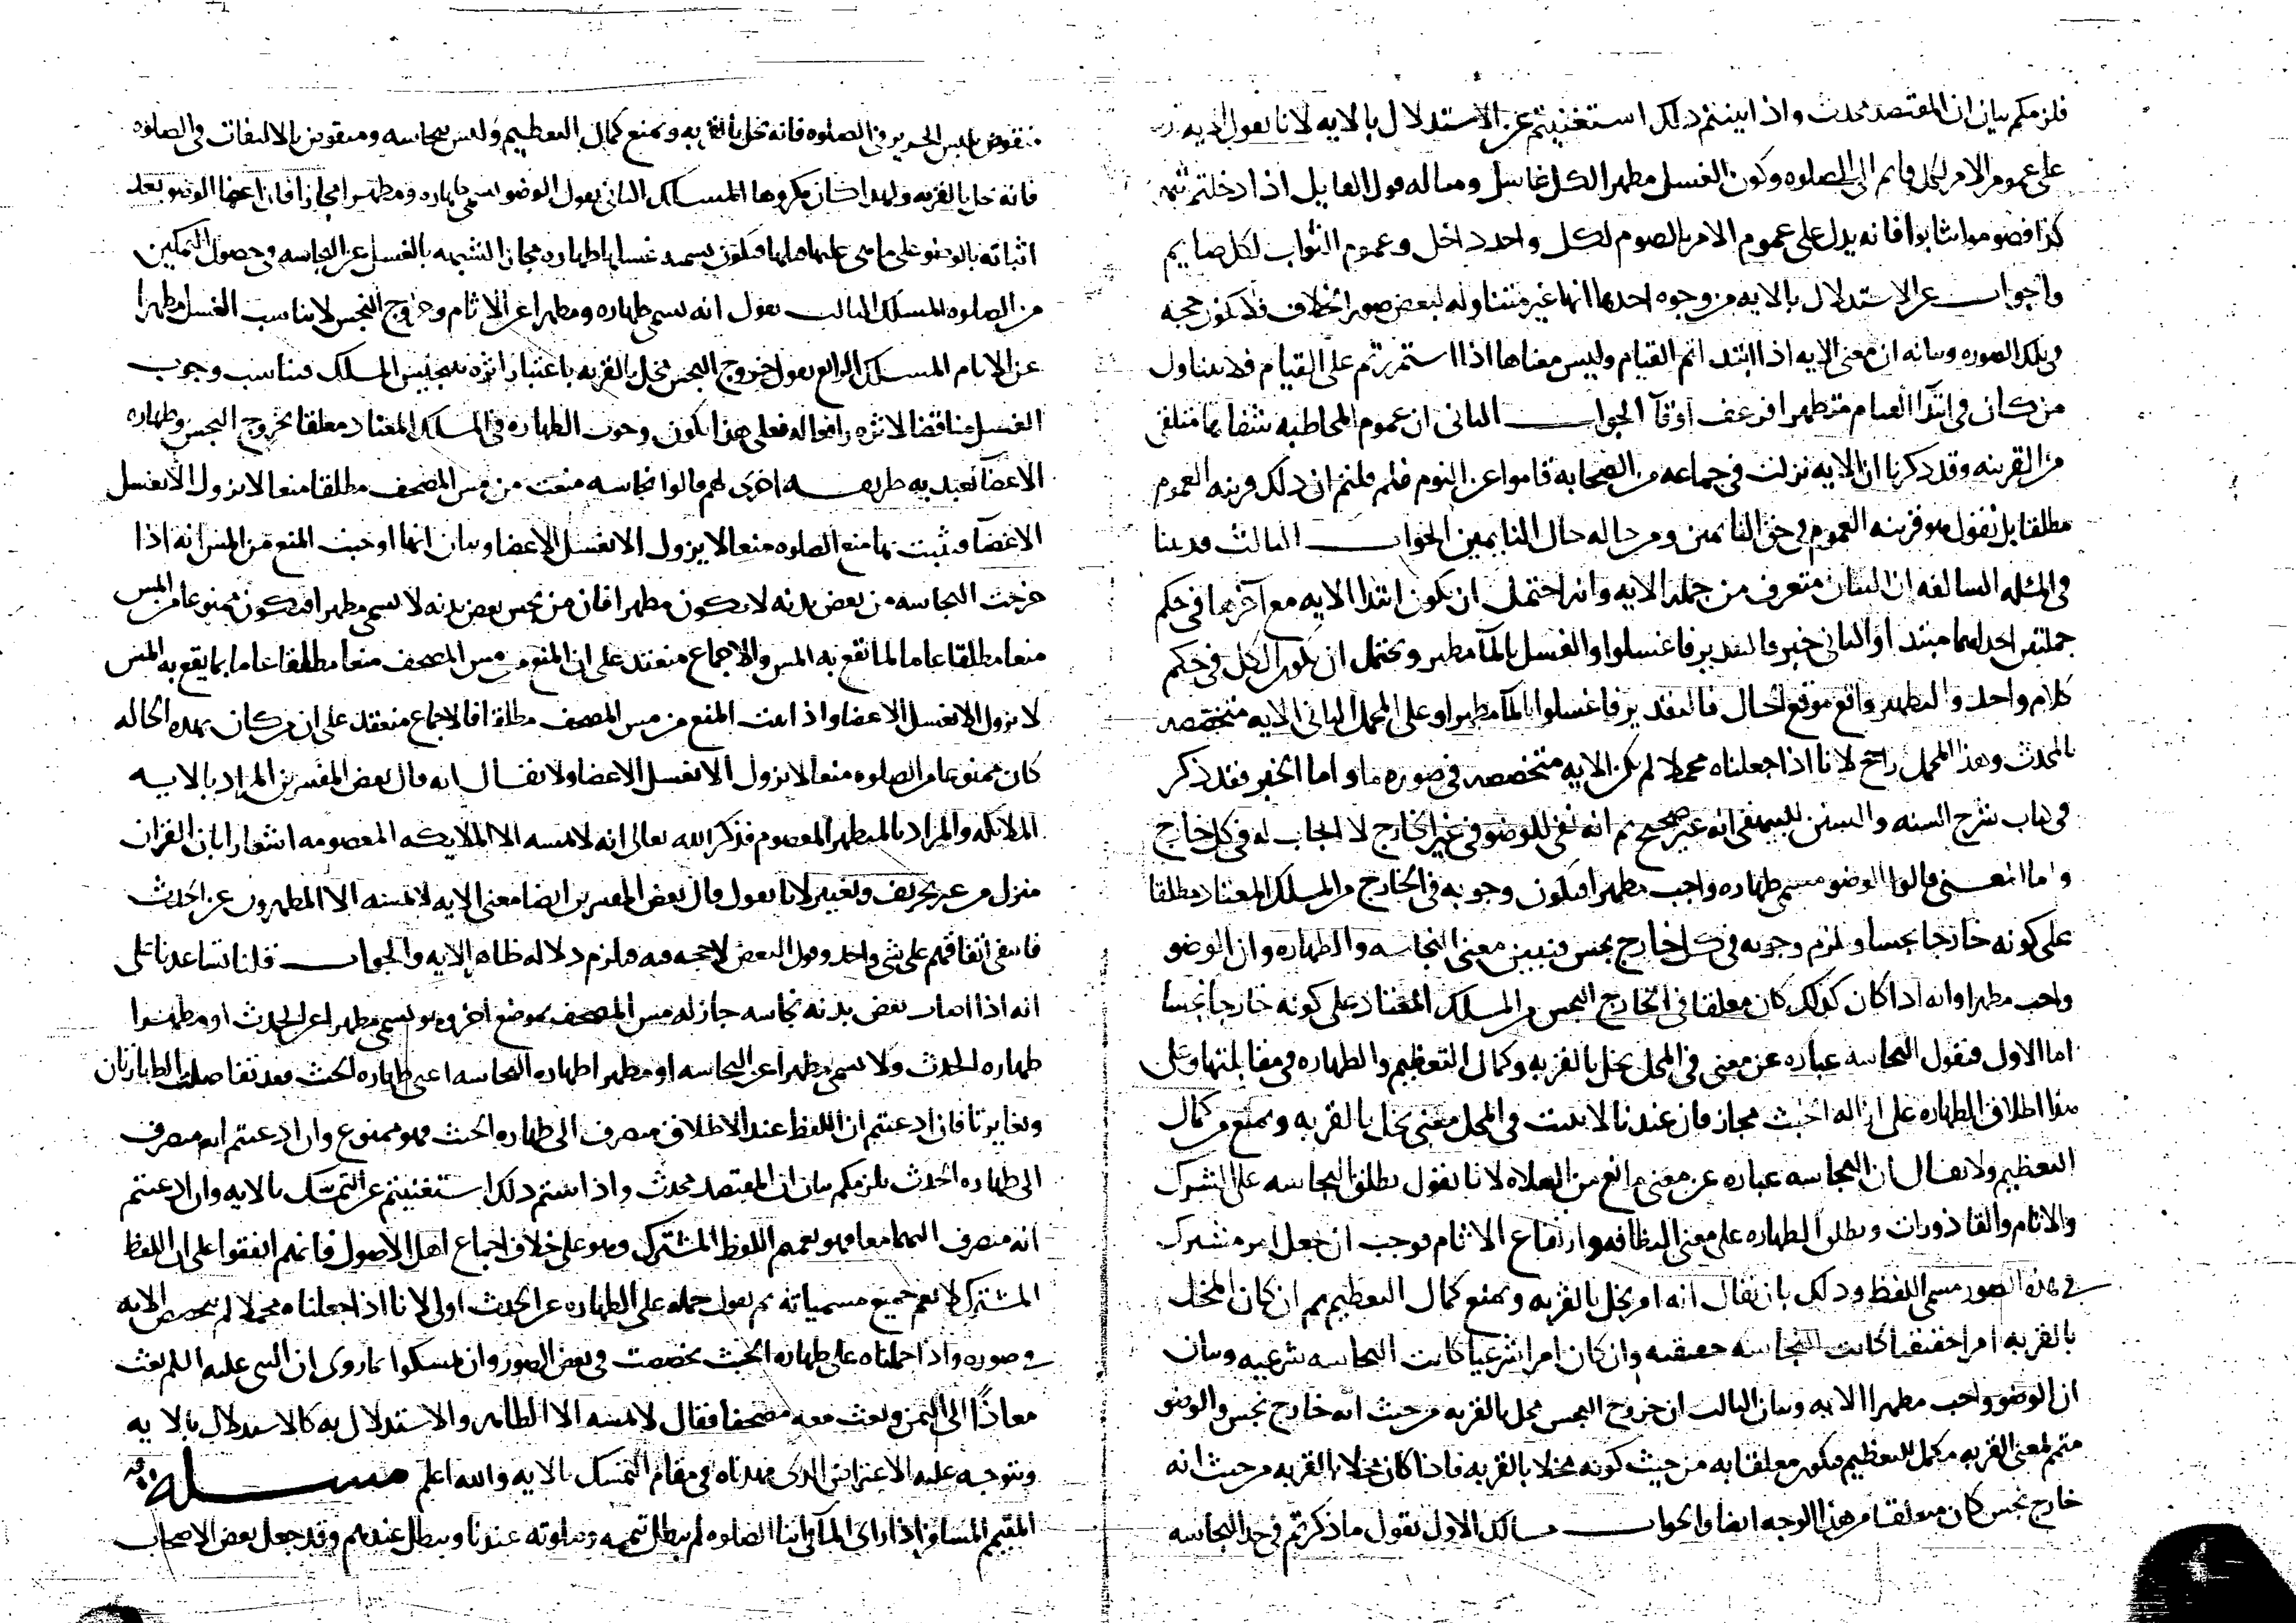 فلزمكم بيان ان المقتصد محدث واذا بينتم ذلك استغنيتم عن الاستدلال بالايه لانا نقول الايه
على عموم الامر لكل قايم الى الصلوه وكون الغسل مطهرا لكل غاسل ومثاله قول القايل اذا دخلتم شهر
كذا فصوموا تثابوا فانه يدل على عموم الامر بالصوم لكل واحد داخل وعموم الثواب لكل صايم
والجواب عن الاستدلال بالايه من وجوه احدها انها غير متناوله لبعض صور الخلاف فلا يكون حجه
في تلك الصوره وبيانه ان معنى الايه اذا ابتدا تم القيام وليس معناها اذا استمررتم على القيام فلا يتناول
من كان في ابتدآ القيام متطهرا فرعف او قآ الجواب الثاني ان عموم المخاطبه شفاها متلقى
من القرينه وقد ذكرنا ان الايه نزلت في جماعه من الصحابه قاموا عن النوم فلم قلتم ان ذلك قرينه العموم
مطلقا بل نقول هو قرينه العموم في حق النايمين ومن حاله حال النايمين الجواب الثالث قد بينا
في المسله السالفه ان البيان متعرف من جمله الايه وانه احتمل ان يكون ابتدا الايه مع آخرها في حكم
جملتين احداهما مبتدا والثاني خبر فالتقدير فاغسلوا والغسل بالمآ مطهر ويحتمل ان يكون الكل في حكم
كلام واحد والتطهير واقع موقع الحال فالتقدير فاغسلوا بالمآ مطهرا وعلى المحمل الثاني الايه متخصصه
بالمحدث وهذا المحمل راجح لانا اذا جعلناه محملا لم تكن الايه متخصصه في صوره ما واما الخبر فقد ذكر
في كتاب شرح السنه والسنن للبيهقي انه غير صحيح ثم انه نفي للوضو في غير الخارج لا ايجاب له في كل خارج
واما المعنى قالوا الوضو مسمى طهاره واجب مطهرا فيكون وجوبه في الخارج من المسلك المعتاد مطلقا
على كونه خارجا نجسا ويلزم وجوبه في كل خارج نجس فنبين معنى النجاسه والطهاره وان الوضو
واجب مطهرا وانه اذا كان كذلك كان معلقا في الخارج النجس من المسلك المعتاد على كونه خارجا نجسا
اما الاول فنقول النجاسه عباره عن معنى في المحل يخل بالقربه وكمال التعظيم والطهاره في مقابلتها وعلى
هذا اطلاق الطهاره على ازاله الخبث مجاز فان عندنا لا يثبت في المحل معنى يخل بالقربه ويمنع من كمال
التعظيم ولا يقال ان النجاسه عباره عن معنى مانع من الصلاه لانا نقول يطلق النجاسه على الشرك
والاثام والقاذورات ويطلق الطهاره على معنى النظافه وارتفاع الاثام فوجب ان نجعل امر مشترك
في هذه الصور مسمى اللفظ وذلك بان يقال انه امر يخل بالقربه ويمنع كمال التعظيم ثم ان كان المخل
بالقربه امرا حقيقيا كانت النجاسه حقيقيه وان كان امرا شرعيا كانت النجاسه شرعيه وبيان
ان الوضو واجب مطهرا الايه وبيان الثالث ان خروج النجس مخل بالقربه من حيث انه خارج نجس والوضو
متمم لمعنى القربه مكمل للتعظيم فيكون معلقا به من حيث كونه مخلا بالقربه فاذا كان مخلا بالقربه من حيث انه
خارج نجس كان متعلقا من هذا الوجه ايضا والجواب مسالك الاول نقول ما ذكرتم في حد النجاسه
منقوض بلبس الحرير في الصلوه فانه مخل بالقربه ويمنع كمال التعظيم وليس بنجاسه ومنقوض بالالتفات في الصلوه
فانه مخل بالقربه ولهذا كان مكروها المسلك الثاني نقول الوضو يسمى طهاره ومطهرا مجازا فان اعضا الوضو بعد
اثباته بالوضو على ما هي عليها قبلها فيكون تسميه غسلها طهاره مجازا لتشبيهه بالغسل عن النجاسه في حصول التمكين
من الصلوه المسلك الثالث نقول انه يسمى طهاره ومطهرا عن الاثام وخروج النجس لا يناسب الغسل مطهرا
عن الاثام المسلك الرابع نقول خروج النجس يخل بالقربه باعتبار اثره بتنجيس المسلك فيناسب وجوب
الغسل مناقضا لاثره رافعا له فعلى هذا يكون وجوب الطهاره في المسلك المعتاد معلقا بخروج النجس وطهاره
الاعضآ تعبديه طريقه اخرى لهم قالوا نجاسه منعت من مس المصحف مطلقا منعا لا يزول الا بغسل
الاعضآ فيثبت بها منع الصلوه منعا لا يزول الا بغسل الاعضا وبيان انها اوجبت المنع من المس انه اذا
خرجت النجاسه من بعض بدنه لا يكون مطهرا فان من نجس بعض بدنه لا يسمى مطهرا فيكون ممنوعا من المس
منعا مطلقا عاما لما يقع به المس والاجماع منعقد على ان الممنوع من مس المصحف منعا مطلقا عاما بما يقع به المس
لا يزول الا بغسل الاعضا واذا ثبت المنع من مس المصحف مطلقا فالاجماع منعقد على ان من كان بهذه الحاله
كان ممنوعا من الصلوه منعا لا يزول الا بغسل الاعضا ولا يقال انه قال بعض المفسرين المراد بالايه
الملائكه والمراد بالمطهر المعصوم فذكر الله تعالى انه لا يمسه الا الملايكه المعصومه اشعارا بان القران
منزل من غير تحريف وتغيير لانا نقول قال بعض المفسرين ايضا معنى الايه لا يمسه الا المطهرون عن الحدث
فانتفى اتفاقهم على شي واحد وقول البعض لا حجه فيه فيلزم دلاله ظاهر الايه والجواب قلنا تساعدنا على
انه اذا اصاب بعض بدنه نجاسه جاز له مس المصحف بموضع اخر وهو يسمى مطهرا عن الحدث او مطهرا
طهاره الحدث ولا يسمى مطهرا عن النجاسه او مطهرا طهاره النجاسه اعني طهاره الخبث فقد تفاصلت الطهارتان
وتغايرتا فان ادعيتم ان اللفظ عند الاطلاق منصرف الى طهاره الخبث فهو ممنوع وان ادعيتم انه منصرف
الى طهاره الحدث يلزمكم بيان ان المقتصد محدث واذا بينتم ذلك استغنيتم عن التمسك بالايه وان ادعيتم
انه منصرف اليهما معا فهو تعميم اللفظ المشترك وهو على خلاف اجماع اهل الاصول فانهم اتفقوا على ان اللفظ
المشترك لا يعم جميع مسمياته ثم نقول حمله على الطهاره عن الحدث اولى لانا اذا جعلناه محملا لم تتخصص الايه
في صوره واذا حملناه على طهاره الخبث تخصصت في بعض الصور وان تمسكوا بما روى ان النبي عليه السلم بعث
معاذا الى اليمن وبعث معه مصحفا فقال لا يمسه الا الطاهر والاستدلال به كالاستدلال بالايه
ويتوجه عليه الاعتراض الذي مهدناه في مقام التمسك بالايه والله اعلم مسله
المقيم المسافر اذا راى المآ في اثنا الصلوه لم يبطل تيممه وصلوته عندنا ويبطل عندهم وقد جعل بعض الاصحاب